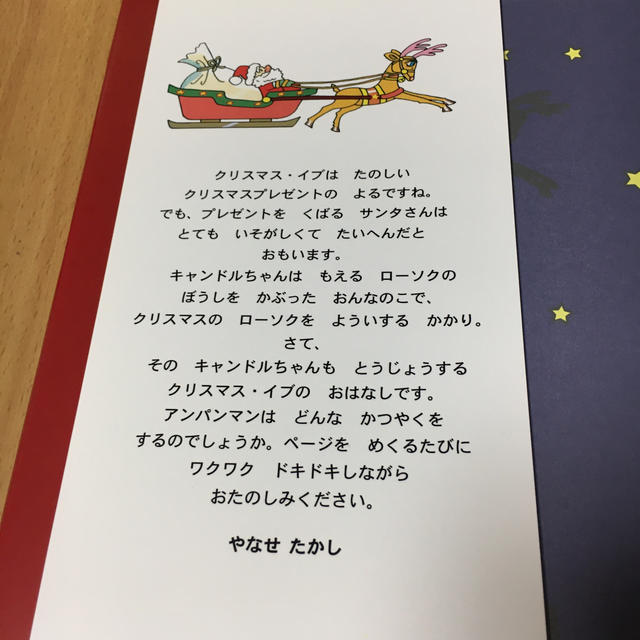 クリスマス・イブは　たのしい
クリスマスプレゼントの　よるですね。
でも、プレゼントを　くばる　サンタさんは
とても　いそがしくて　たいへんだと
おもいます。
キャンドルちゃんは　もえる　ローソクの
ぼうしを　かぶった　おんなのこで、
クリスマスの　ローソクを　よういする　かかり。
さて、
その　キャンドルちゃんも　とうじょうする
クリスマス・イブの　おはなしです。
アンパンマンは　どんな　かつやくを
するのでしょうか。ページを　めくるたびに
ワクワク　ドキドキしながら
おたのしみください。
やなせ たかし